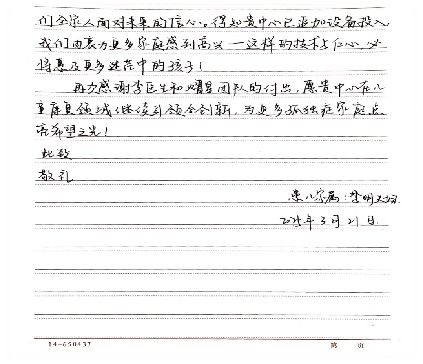 们全家人面对未来的信心。得知贵中心已追加设备投入
我们由衷为更多家庭感到高兴—这样的技术与仁心,必
将惠及更多迷茫中的孩子!
再次感谢李医生和曙星团队的付出,愿贵中心在儿
童康复领域继续引领创新,为更多孤独症家庭点
亮希望之光!
此致
敬礼
患儿家属:黎明
2025年3月21日
14-650437
第 页